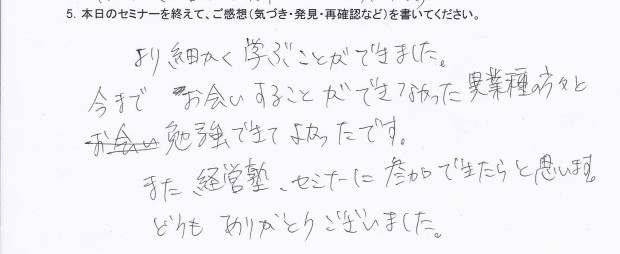 5. 本日のセミナーを終えて、ご感想（気づき・発見・再確認など）を書いてください。
より細かく学ぶことができました。
今までお会いすることができなかった異業種の方々と
お会い勉強できてよかったです。
また経営塾、セミナーに参加できたらと思います。
どうもありがとうございました。